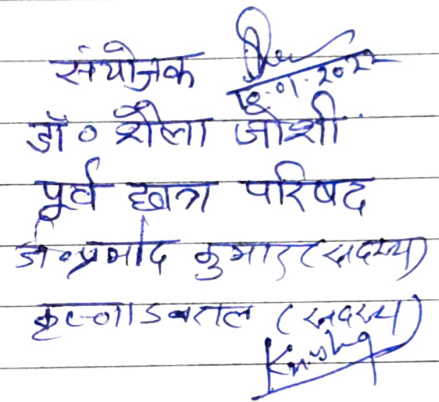 संयोजक
18.01.2022
डॉ० शैला जोशी
पूर्व छात्र परिषद
डॉ०प्रमोद कुमार (सदस्य)
कृष्णा डबराल (सदस्य)
Krishna